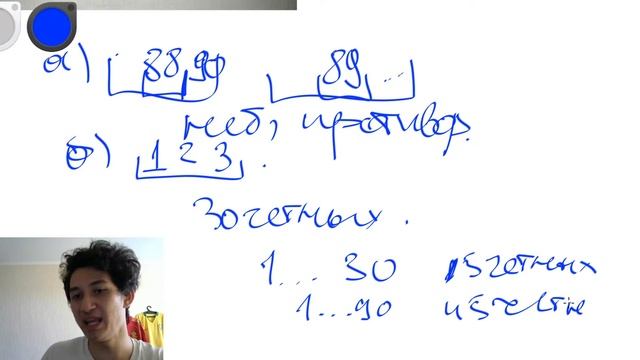 а) 88 90 89 ...
неб, противор.
б) 1 2 3 .
30 четных .
1 ... 30 15 четных
1 ... 90 45 четн